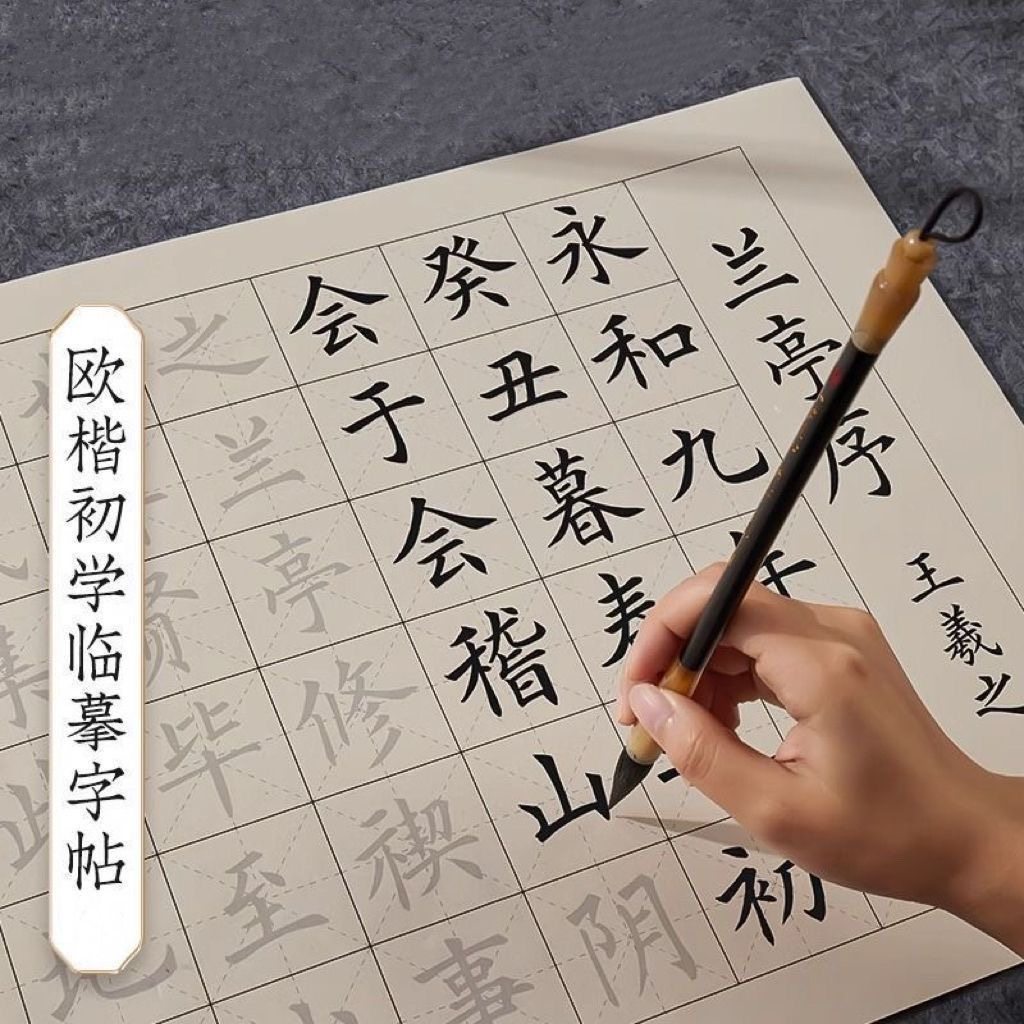 兰亭序 王羲之
永和九年
癸丑暮春初
会于会稽山阴
之兰亭修禊事
贤毕至
集此地
欧楷初学临摹字帖